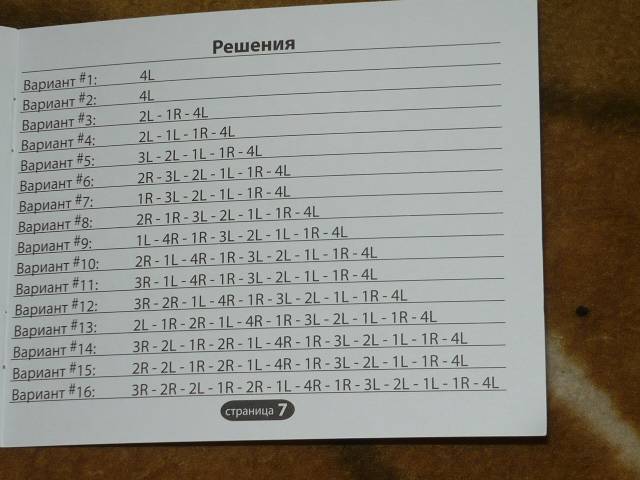 Решения
Вариант #1: 4L
Вариант #2: 4L
Вариант #3: 2L - 1R - 4L
Вариант #4: 2L - 1L - 1R - 4L
Вариант #5: 3L - 2L - 1L - 1R - 4L
Вариант #6: 2R - 3L - 2L - 1L - 1R - 4L
Вариант #7: 1R - 3L - 2L - 1L - 1R - 4L
Вариант #8: 2R - 1R - 3L - 2L - 1L - 1R - 4L
Вариант #9: 1L - 4R - 1R - 3L - 2L - 1L - 1R - 4L
Вариант #10: 2R - 1L - 4R - 1R - 3L - 2L - 1L - 1R - 4L
Вариант #11: 3R - 1L - 4R - 1R - 3L - 2L - 1L - 1R - 4L
Вариант #12: 3R - 2R - 1L - 4R - 1R - 3L - 2L - 1L - 1R - 4L
Вариант #13: 2L - 1R - 2R - 1L - 4R - 1R - 3L - 2L - 1L - 1R - 4L
Вариант #14: 3R - 2L - 1R - 2R - 1L - 4R - 1R - 3L - 2L - 1L - 1R - 4L
Вариант #15: 2R - 2L - 1R - 2R - 1L - 4R - 1R - 3L - 2L - 1L - 1R - 4L
Вариант #16: 3R - 2R - 2L - 1R - 2R - 1L - 4R - 1R - 3L - 2L - 1L - 1R - 4L
страница 7